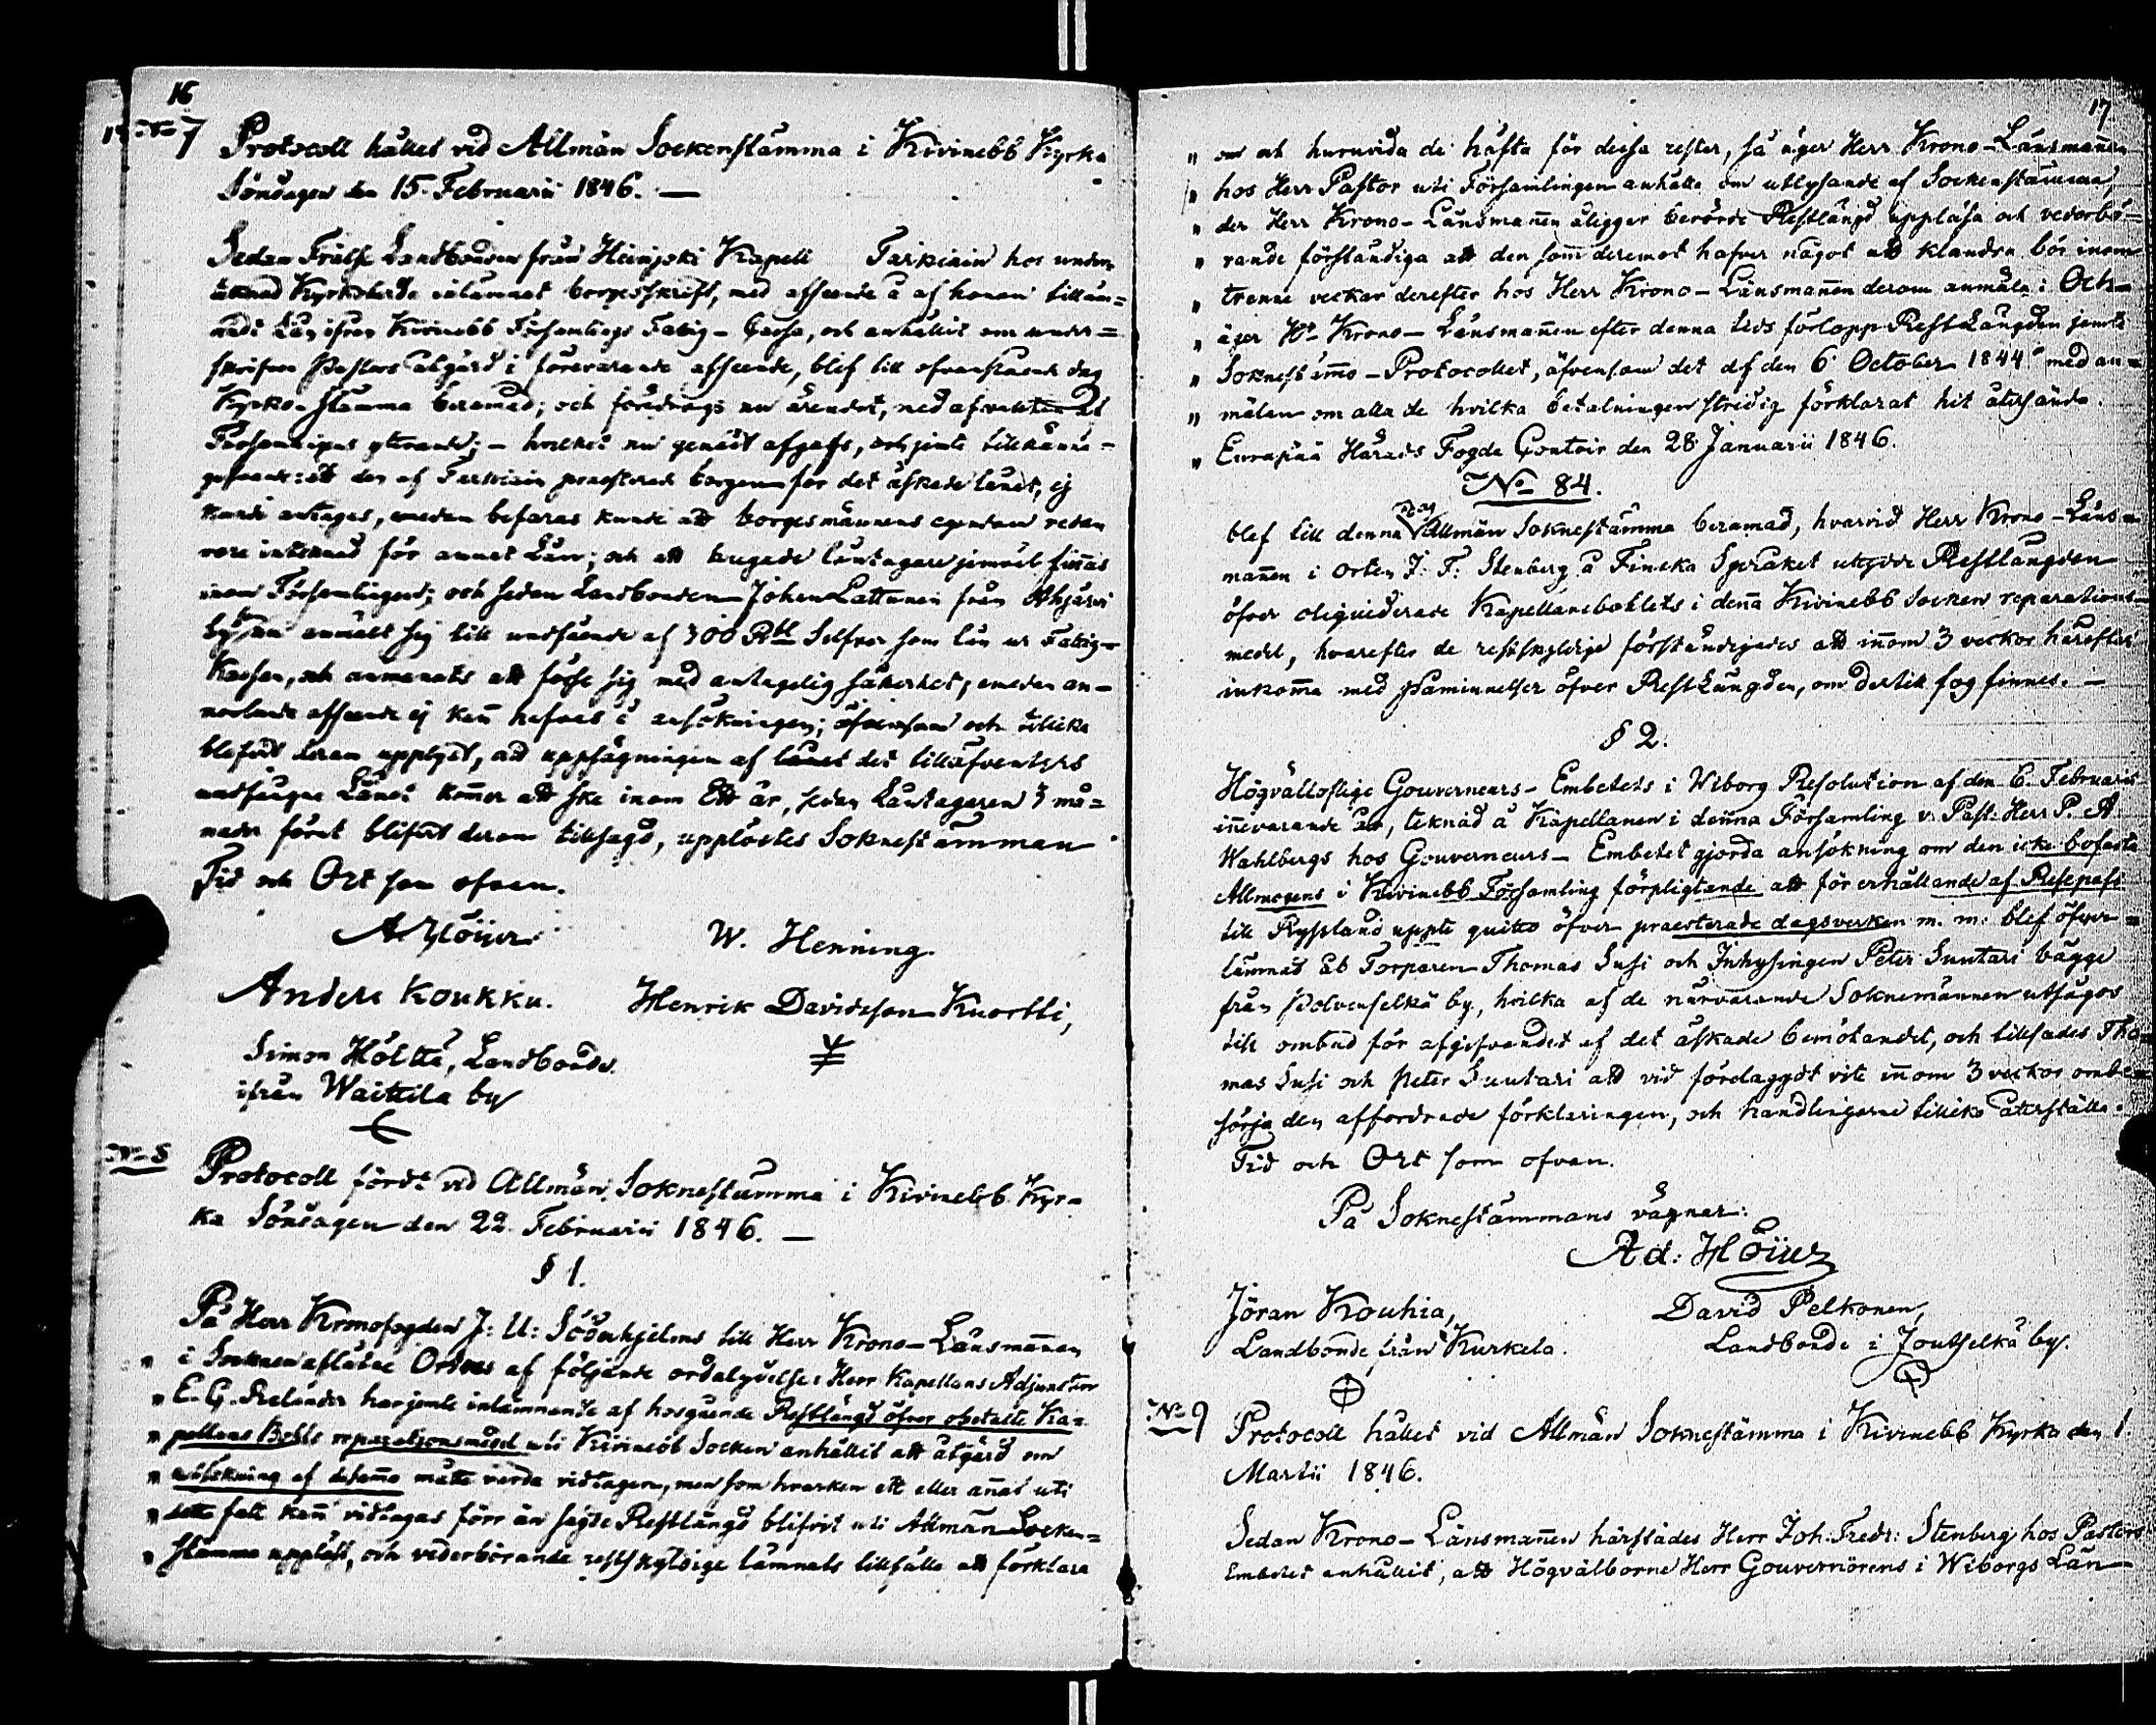 16
No 7
Protocoll hållet vid Allmän Sockenstämma i Kivinebb Kyrka
Söndagen den 15. Februarii 1846. —
Sedan Frälse Landbonden från Heinjoki Kapell Tarkiain hos under-
tecknad Kyrkoherde inlämnat borgesskrift, med afseende å af honom tilläm-
nadt Lån ifrån Kivinebb Församlings Fattig-Cassa, och anhållit om
Pastors åtgärd i förevarande afseende, blef till ofvanstående dag
Kyrko-stämma beramad; och föredrogs nu ärendet, med afvaktan af
Församlingens yttrande; — hvilket nu genast afgafs, och jemte tillkänna-
gifvande: att den af Tarkiain praesterade borgen för det äskade lånet, ej
kunde antagas, emedan befaras kunde att borgesmännens egendom redan
vore intecknad för annat Lån; och att låntagare jemväl finnas
inom Församlingen; och sedan Landbonden Johan Lattunen från Ahjärvi
by nu anmält sig till undfående af 300 Rbl Silfver som lån ur Fattig-
Kassan, och anmanats att förse sig med antagelig säkerhet, emedan an-
norlunda afseende ej kan hafvas å ansökningen; äfvensom och tillika
blifvit derom upplyst, att uppsägningen af lånet det tilläfventyrs
undfångne Lånet kommer att ske inom Ett år, sedan Låntagaren 3 må-
nader förut blifvit derom tillsagd, upplöstes Soknestämman
Tid och Ort som ofvan.
A. Höijer
W. Henning.
Anders Koukku.
Henrik Davidsson Kuortti,
Simon Hölttä, Landbonde
ifrån Waittila by
No 8
Protocoll fördt vid Allmän Soknestämma i Kivinebb Kyr-
ka Söndagen den 22. Februarii 1846. —
§ 1.
På Herr Kronofogden J: U: Söderhjelms till Herr Krono-Länsmannen
" i Socknen aflåtne Ordres af följande ordalydelse: Herr Kapellans Adjuncten
" E. G. Relander har jemte inlämnande af hosgående Restlängd öfver obetalte Ka-
" pellans Bohls reparationsmedel uti Kivinebb Socken anhållit att åtgärd om
" utsökning af desamma måtte varda vidtagen, men som hvarken ett eller annat uti
" detta fall kan vidtagas förr än sagde Restlängd blifvit uti Allmän Socken-
" stämma uppläst, och vederbörande restskyldige lämnats tillfälle att förklara
17
" om och huruvida de häfta för dessa rester, så äger Herr Krono-Länsmannen
" hos Herr Pastor uti Församlingen anhålla om utlysande af Sockenstämma,
" der Herr Krono-Länsmannen åligger berörde Restlängd uppläsa och vederbö-
" rande förständiga att den som deremot hafver något att klandra bör inom
" trenne veckor derefter hos Herr Krono-Länsmannen derom anmäla; Och
" äger Hr Krono-Länsmannen efter denna tids förlopp RestLängden jemte
" Soknestämmo-Protocollet, äfvensom det af den 6 October 1844 med an-
" mälan om alla de hvilka betalningen stridig förklarat hit återsända.
" Euräpää Härads Fogde Contoir den 28 Januarii 1846.
No 84.
blef till denna dag Allmän Soknestämma beramad, hvarvid Herr Krono-Läns-
mannen i orten J: F: Stenberg å Finska Språket uttydde Restlängden
öfver oliquiderade Kapellansbohlets i denna Kivinebb Socken reparations
medel, hvarefter de restskyldige förständigades att inom 3 veckor härefter
inkomma med Påminnelser öfver RestLängden, om dertill fog finnes. —
§ 2.
Högvälloflige Gouverneurs-Embetets i Wiborg Resolution af den 6. Februarii
innevarande år, teknad å Kapellanen i denna Församling v. Past: Herr P. A.
Wahlbergs hos Gouverneurs-Embetet gjorda ansökning om den icke bofasta
Allmogens i Kivinebb Församling förpligtande att för erhållande af Resepass
till Ryssland uppte quitto öfver praesterade dagsverken m. m: blef öfver-
lämnad åt Torparen Thomas Susi och Inhysingen Peter Suntari bägge
från Polvenselkä by, hvilka af de närvarande Soknemännen utsågos
till ombud för afgifvandet af det äskade bemötandet, och tillsades Tho-
mas Susi och Peter Suutari att vid förelaggdt vite innom 3 veckor ombe-
sörja den affordrade förklaringen, och handlingarne tillika återställa.
Tid och Ort som ofvan.
På Soknestämmans vägnar:
Ad: Höijer
Jöran Kouhia,
Landbonde från Kurkela.
David Pelkonen,
Landbonde i Joutselkä by.
No 9
Protocoll hållet vid Allmän Soknestämma i Kivinebb Kyrka den 1.
Martii 1846.
Sedan Krono-Länsmannen härstädes Herr Joh: Fredr: Stenberg hos Pastors
Embetet anhållit, att Högvälborne Herr Gouvernörens i Wiborgs Län